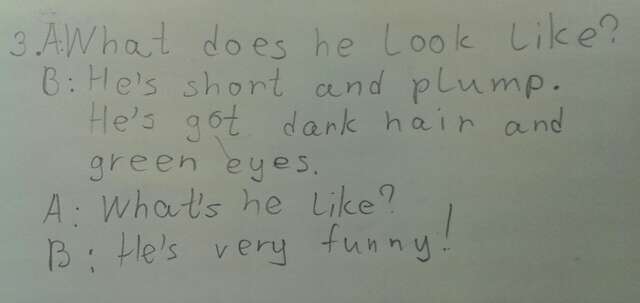 3. A: What does he look like?
B: He's short and plump.
He's got dark hair and
green eyes.
A: What's he like?
B: He's very funny!